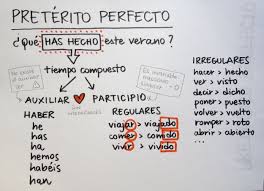 PRETÉRITO PERFECTO
¿Qué HAS HECHO este verano?
tiempo compuesto
No existe
el auxiliar
Es invariable
masculino
singular
AUXILIAR ❤ PARTICIPIO
HABER
he
has
ha
hemos
habéis
han
REGULARES
viajar > viajado
comer > comido
vivir > vivido
IRREGULARES
hacer > hecho
ver > visto
decir > dicho
poner > puesto
volver > vuelto
romper > roto
abrir > abierto
...